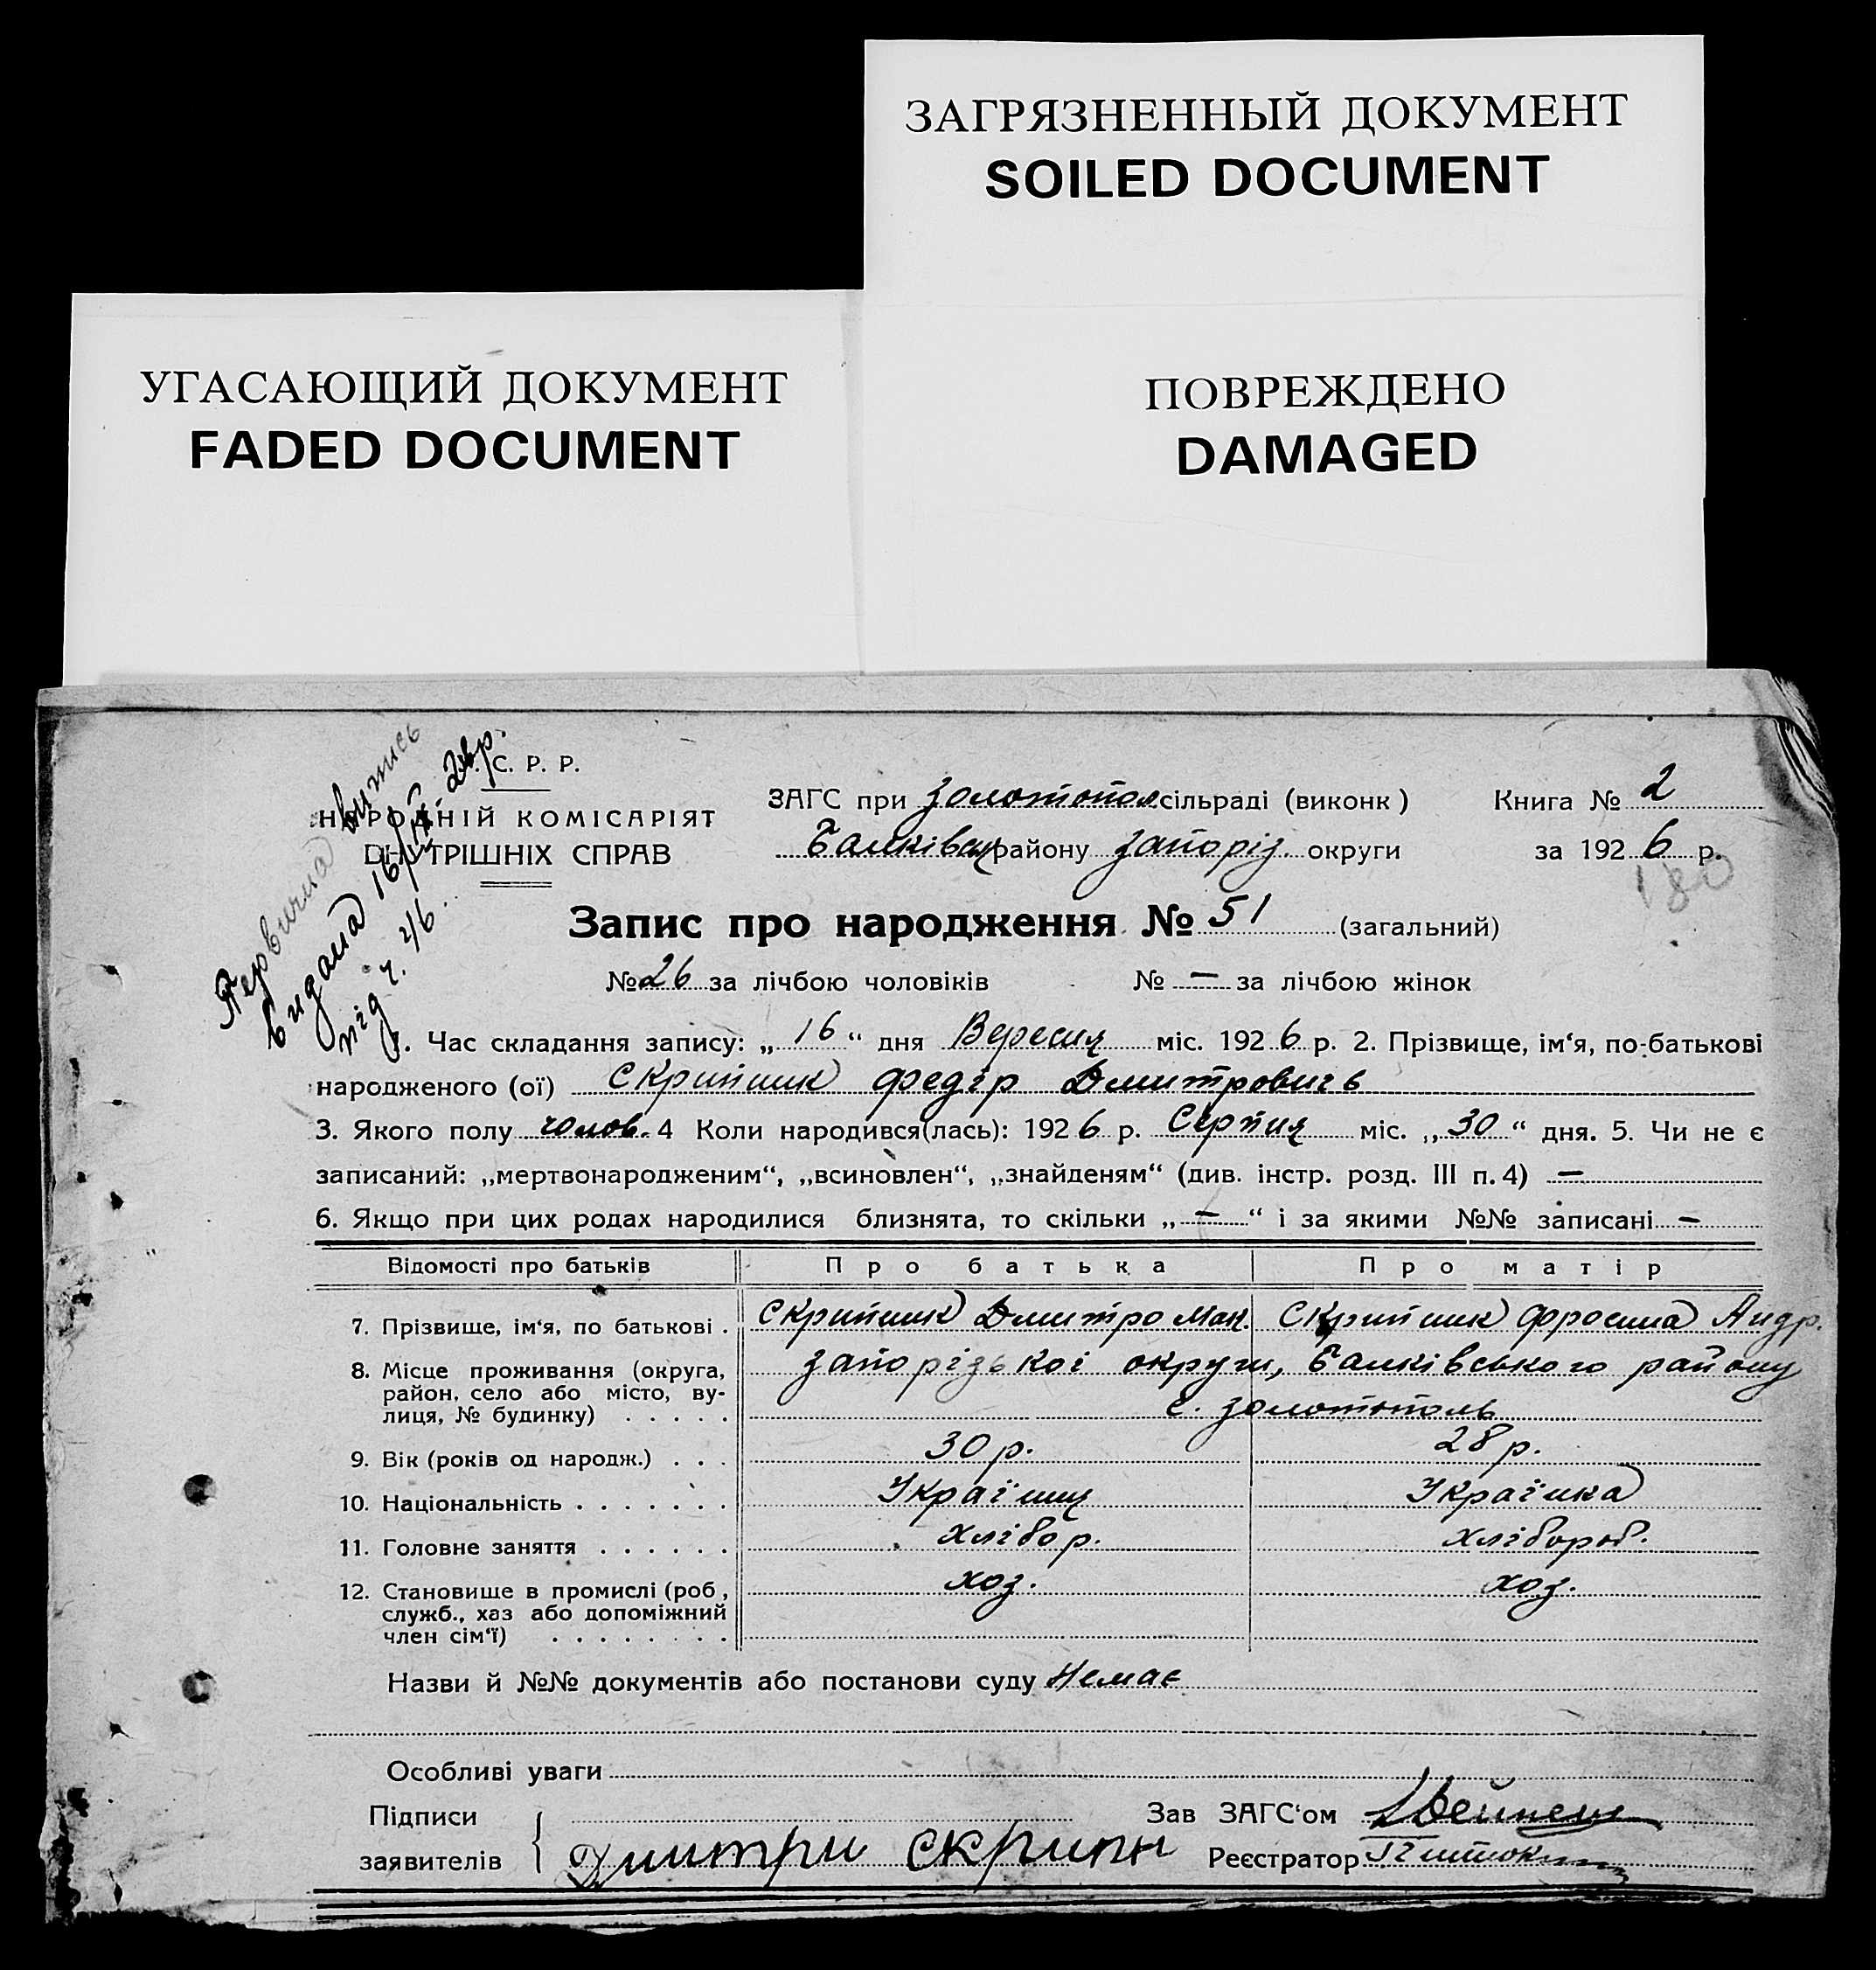 ЗАГРЯЗНЕННЫЙ ДОКУМЕНТ
SOILED DOCUMENT
УГАСАЮЩИЙ ДОКУМЕНТ
FADED DOCUMENT
ПОВРЕЖДЕНО
DAMAGED
Первична витись
видана 16/IX 26р.
під ч. 46.
С. Р. Р.
НАРОДНІЙ КОМІСАРІЯТ
ВНУТРІШНІХ СПРАВ
ЗАГС при Золотопол сільраді (виконк)
Книга № 2
Балківськ району Запоріз. округи
за 1926 р.
180
Запис про народження № 51 (загальний)
№ 26 за лічбою чоловіків № — за лічбою жінок
1. Час складання запису: „ 16 “ дня Вересня міс. 1926 р. 2. Прізвище, ім‘я, по-батькові
народженого (ої) Скрипник Федір Дмитровичь
3. Якого полу чолов. 4 Коли народився(лась): 1926 р. Серпня міс. „ 30 “ дня. 5. Чи не є
записаний: „мертвонародженим“, „всиновлен“, „знайденям“ (див. інстр. розд. III п. 4) —
6. Якщо при цих родах народилися близнята, то скільки „ — “ і за якими №№ записані —
Відомості про батьків Про батька Про матір
7. Прізвище, ім‘я, по батькові . Скрипник Дмитро Мак. Скрипник Фросина Андр.
8. Місце проживання (округа, Запорізької округи, Балківського району
район, село або місто, ву-
лиця, № будинку) . . . . . с. Золотополь
9. Вік (років од народж.) . . . 30 р. 28 р.
10. Національність . . . . . . . Українця Українка
11. Головне заняття . . . . . . хлібор. хлібороб.
12. Становище в промислі (роб, хоз. хоз.
служб., хаз або допоміжний
член сім‘ї) . . . . . . . .
Назви й №№ документів або постанови суду Немає
Особливі уваги
Підписи
Зав ЗАГС‘ом
заявителів Дмитри Скрипн
Реєстратор